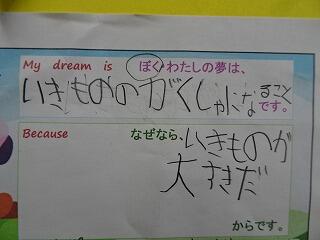 My dream is ぼく・わたしの夢は、
いきもののがくしゃになること
です。
Because なぜなら、いきものが
大すきだ
からです。